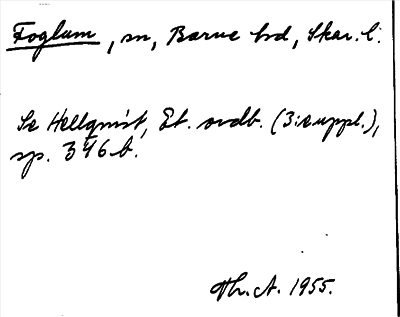 Foglum, sn, Barne hd, Skar. l.
Se Hellquist, Et. ordb. (3:e uppl.),
sp. 346 b.
Th. A. 1955.